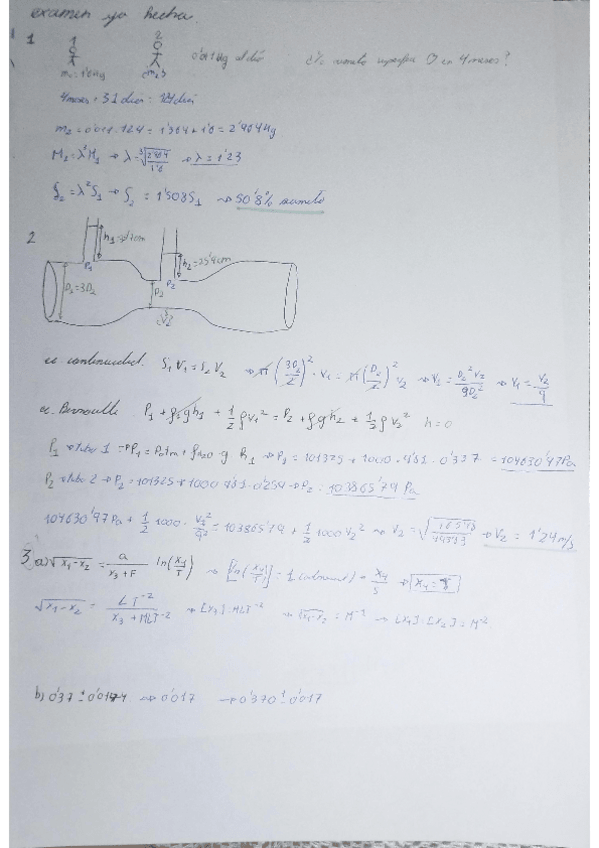 examen ya hecha.
1 1 2 0'011 kg al día
4 meses · 31 días = 124 días
m₂ = 0'011 · 124 = 1'364 + 1'6 = 2'964 kg
M₂ = λ³M₁ → λ = ∛(2'964/1'6) → λ = 1'23
S₂ = λ²S₁ → S₂ = 1'508S₁ → 50'8% aumentó
2 h₁ = cm h₂ = 25'4cm
P₁ P₂
D₁ = 3D₂ D₂
¿V₂?
ec continuidad. S₁V₁ = S₂V₂ → π(3D₂/2)² · V₁ = π(D₂/2)² V₂ → V₁ = D₂²V₂/9D₂² → V₁ = V₂/9
ec. Bernoulli P₁ + ρgh₁ + 1/2 ρV₁² = P₂ + ρgh₂ + 1/2 ρV₂² h = 0
P₁ → tubo 1 → P₁ = Patm + ρH₂O · g · h₁ → P₁ = 101325 + 1000 · 9'81 · 0'337 = 104630'97 Pa
P₂ → tubo 2 → P₂ = 101325 + 1000 · 9'81 · 0'254 → P₂ = 103865'79 Pa
104630'97 Pa + 1/2 1000 · V₂²/9² = 103865'79 + 1/2 1000 V₂² → V₂ = √ → V₂ = 1'24 m/s
3. a) √(x₁-x₂) = a/(x₃+F) ln(x₄/T) → [ln(x₄/T)] = 1 (adimens) =
√(x₁-x₂) = LT⁻²/(x₃ + MLT⁻²) → [x₃] = MLT⁻² → √(x₁-x₂) = M⁻¹ → [x₁] = [x₂] = M⁻²
b) 0'37 ± → 0'017 → 0'370 ± 0'017